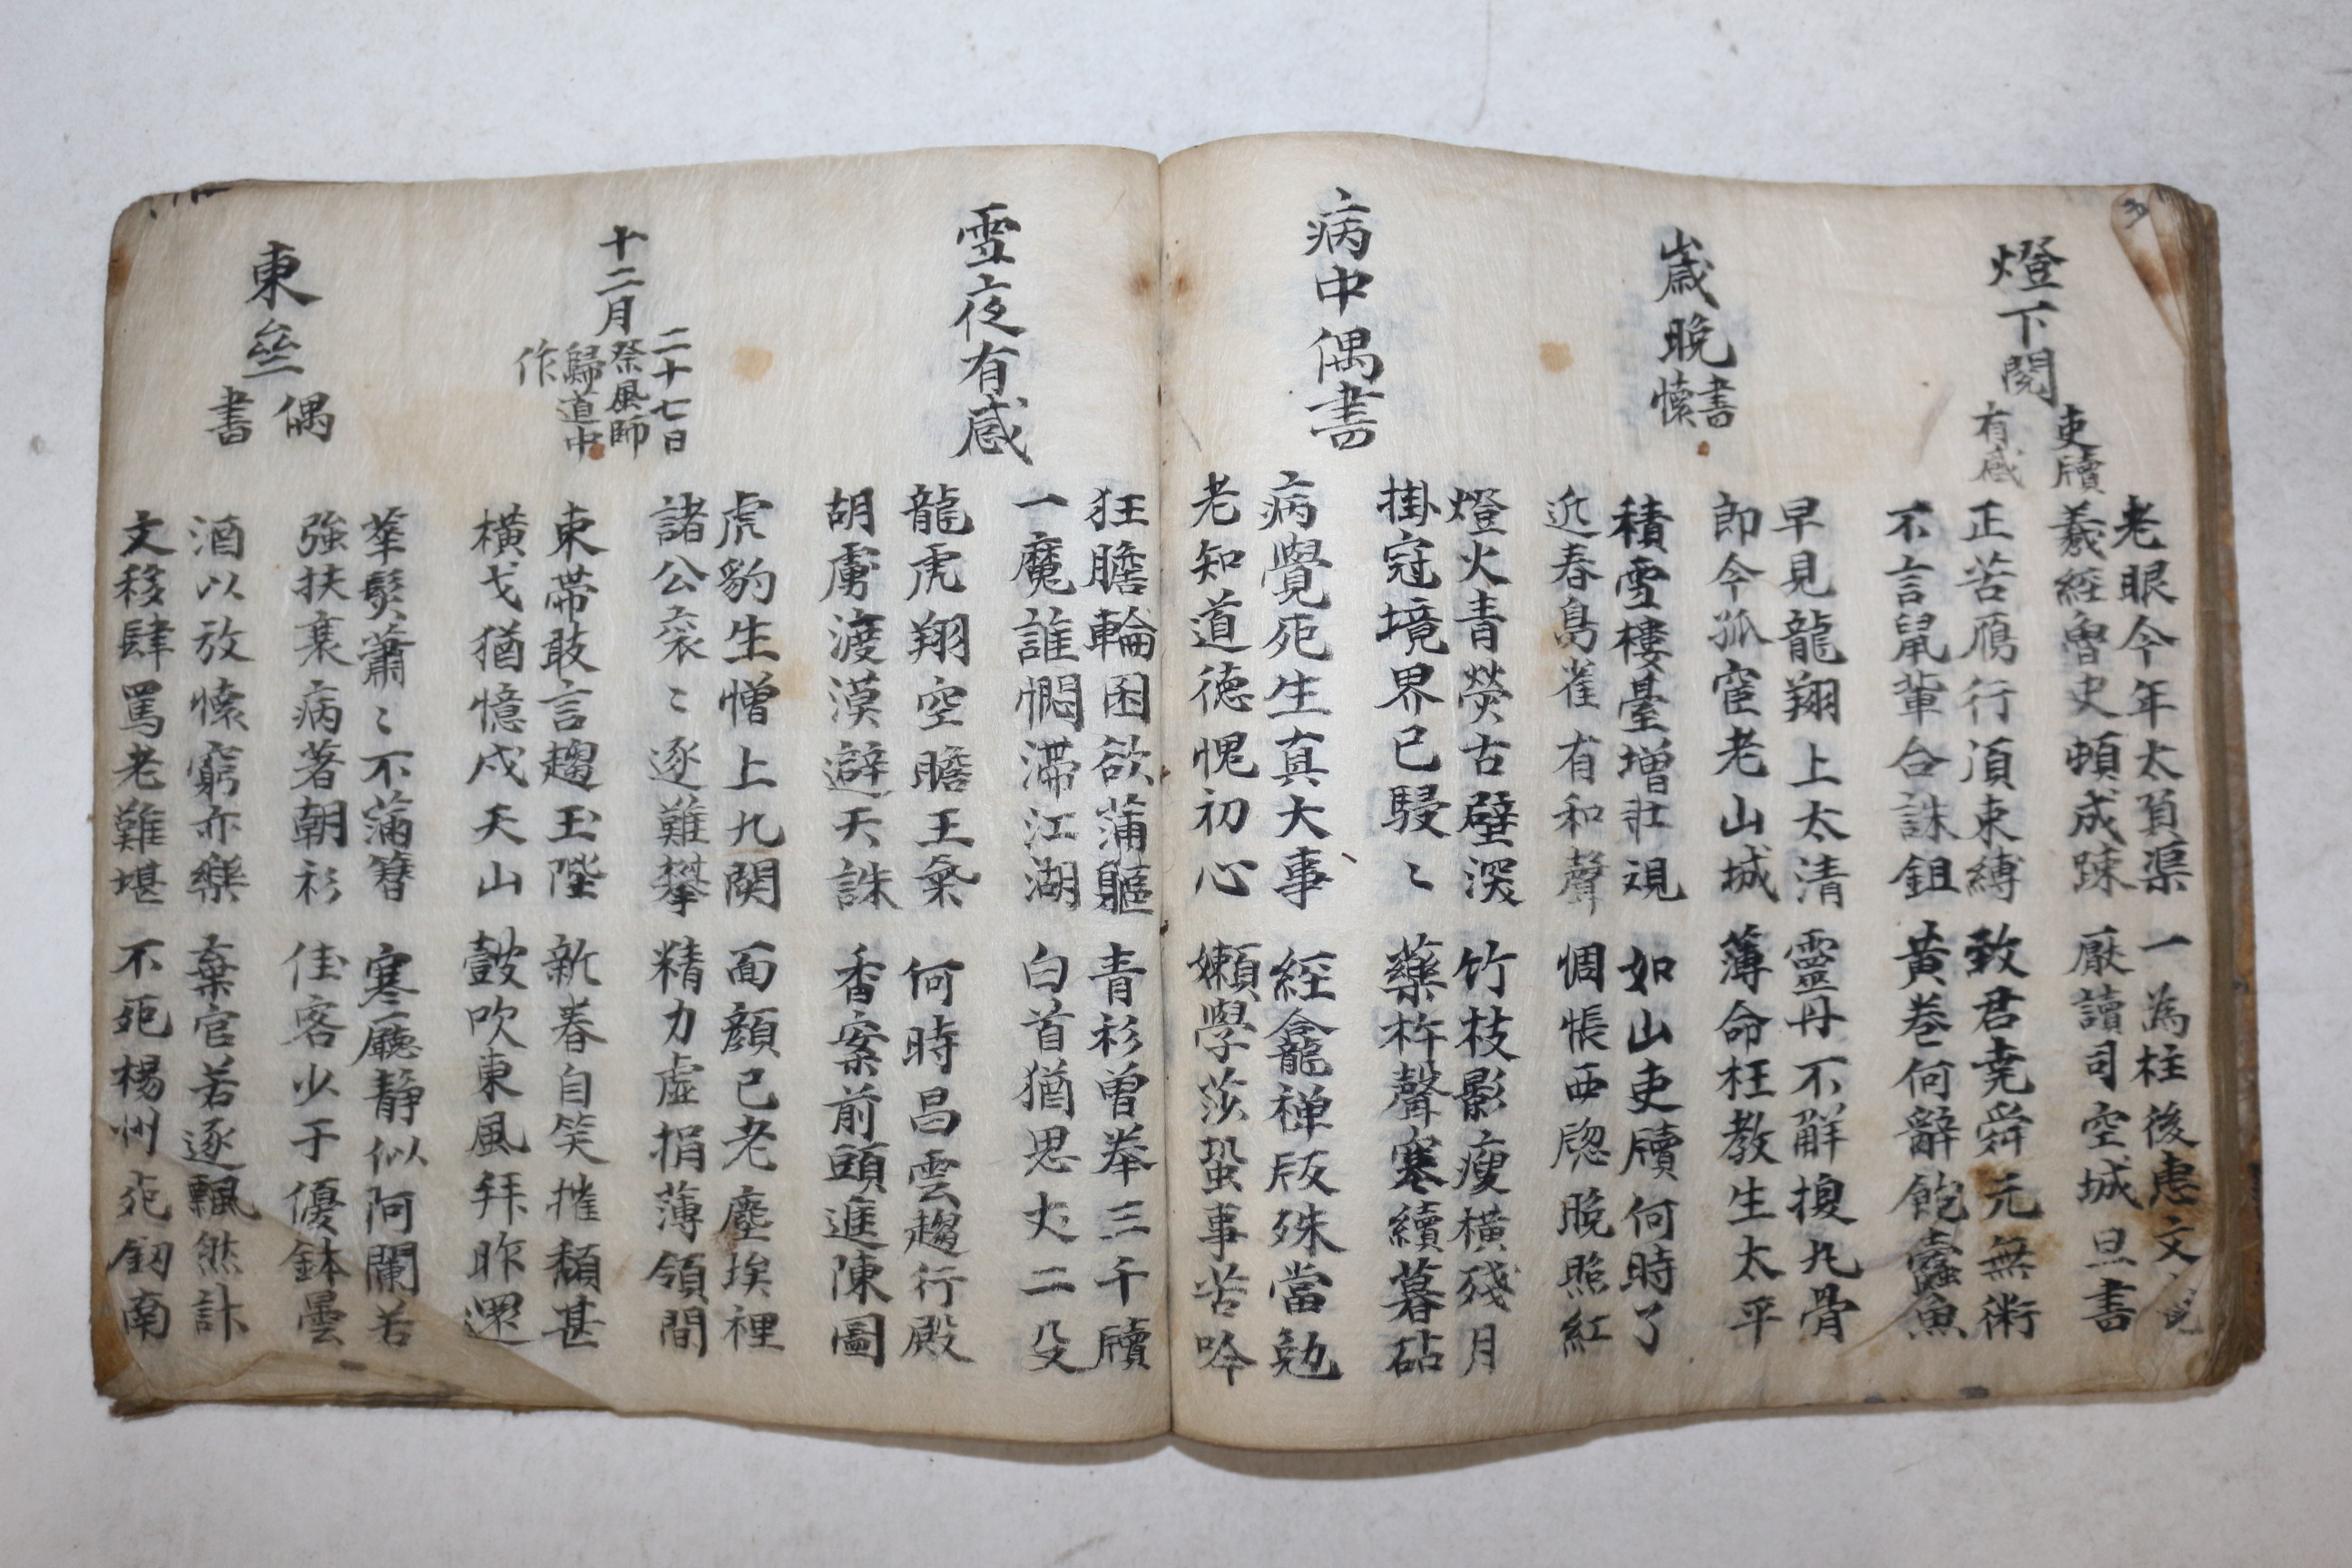 燈下閱
吏牘
有感
老眼今年太負渠 一為柱後惠文
羲經魯史頓成疎 厭讀司空城旦書
正苦鴈行項束縛 致君堯舜元無術
不言鼠輩合誅鉏 黃卷何辭飽蠹魚
歲晚
書
懷
早見龍翔上太清 靈丹不解換九骨
即今孤宦老山城 薄命枉教生太平
積雪樓臺增壯覩 如山吏牘何時了
近春鳥雀有和聲 惆悵西牎晩照紅
病中偶書
燈火青熒古壁深 竹枝影瘦橫殘月
掛冠境界已駸〻 藥杵聲寒續暮砧
病覺死生真大事 經龕禪版殊當勉
老知道德愧初心 嬾學莎蛩事苦吟
雪夜有感
狂膽輪囷欲蒲軀 青衫曾奉三千牘
一魔誰憫滯江湖 白首猶思丈二殳
龍虎翔空瞻王氣 何時昌雲趨行殿
胡虜渡漠避天誅 香案前頭進陳圖
十二月
二十七日
祭風師
歸道中
作
虎豹生憎上九關 面顏已老塵埃裡
諸公袞〻逐難攀 精力虛捐薄領間
束帶敢言趨玉陛 新春自笑摧頹甚
橫戈猶憶戍天山 鼓吹東風拜昨還
東
偶
書
華髮蕭〻不蒲簪 寒廳靜似阿蘭若
強扶衰病著朝衫 佳客少于優鉢曇
酒以放懷窮亦樂 棄官若逐飄然計
文移肆罵老難堪 不死楊州死劒南